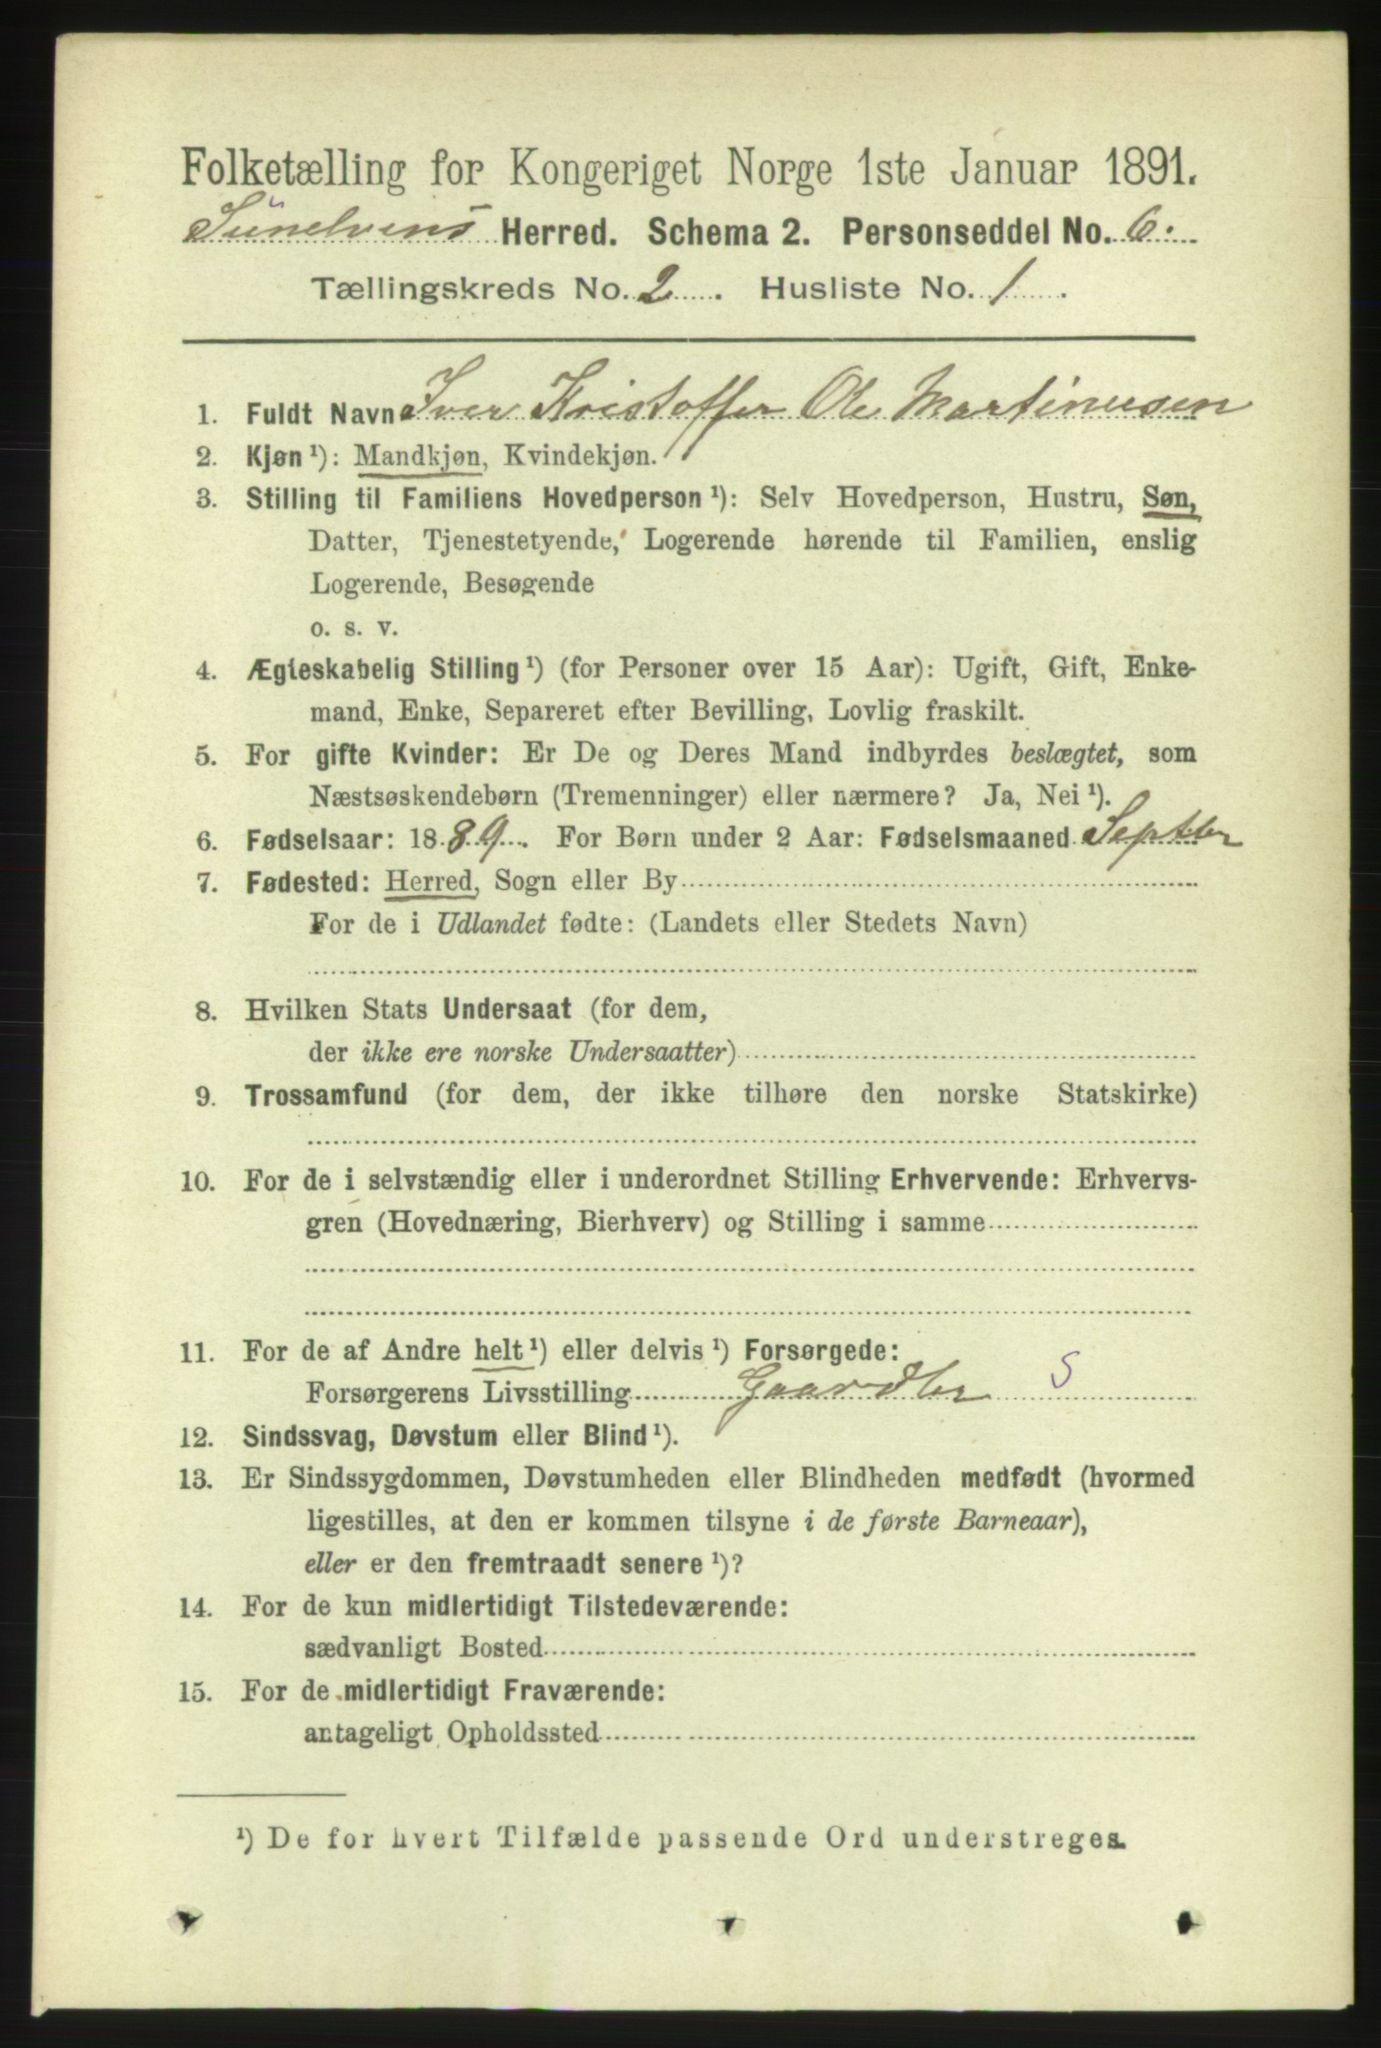 Folketælling for Kongeriget Norge 1ste Januar 1891.
Sünelvens Herred. Schema 2. Personseddel No. 6.
Tællingskreds No. 2. Husliste No. 1.
1. Fuldt Navn Iver Kristoffer Ole Martinusen
2. Kjøn ¹): Mandkjøn, Kvindekjøn.
3. Stilling til Familiens Hovedperson ¹): Selv Hovedperson, Hustru, Søn,
Datter, Tjenestetyende, Logerende hørende til Familien, enslig
Logerende, Besøgende
o. s. v.
4. Ægteskabelig Stilling ¹) (for Personer over 15 Aar): Ugift, Gift, Enke-
mand, Enke, Separeret efter Bevilling, Lovlig fraskilt.
5. For gifte Kvinder: Er De og Deres Mand indbyrdes beslægtet, som
Næstsøskendebørn (Tremenninger) eller nærmere? Ja, Nei ¹).
6. Fødselsaar: 1889. For Børn under 2 Aar: Fødselsmaaned Septbr
7. Fødested: Herred, Sogn eller By
For de i Udlandet fødte: (Landets eller Stedets Navn)
8. Hvilken Stats Undersaat (for dem,
der ikke ere norske Undersaatter)
9. Trossamfund (for dem, der ikke tilhøre den norske Statskirke)
10. For de i selvstændig eller i underordnet Stilling Erhvervende: Erhvervs-
gren (Hovednæring, Bierhverv) og Stilling i samme
11. For de af Andre helt ¹) eller delvis ¹) Forsørgede:
Forsørgerens Livsstilling Gaardbr S
12. Sindssvag, Døvstum eller Blind ¹).
13. Er Sindssygdommen, Døvstumheden eller Blindheden medfødt (hvormed
ligestilles, at den er kommen tilsyne i de første Barneaar),
eller er den fremtraadt senere ¹)?
14. For de kun midlertidigt Tilstedeværende:
sædvanligt Bosted
15. For de midlertidigt Fraværende:
antageligt Opholdssted
¹) De for hvert Tilfælde passende Ord understreges.